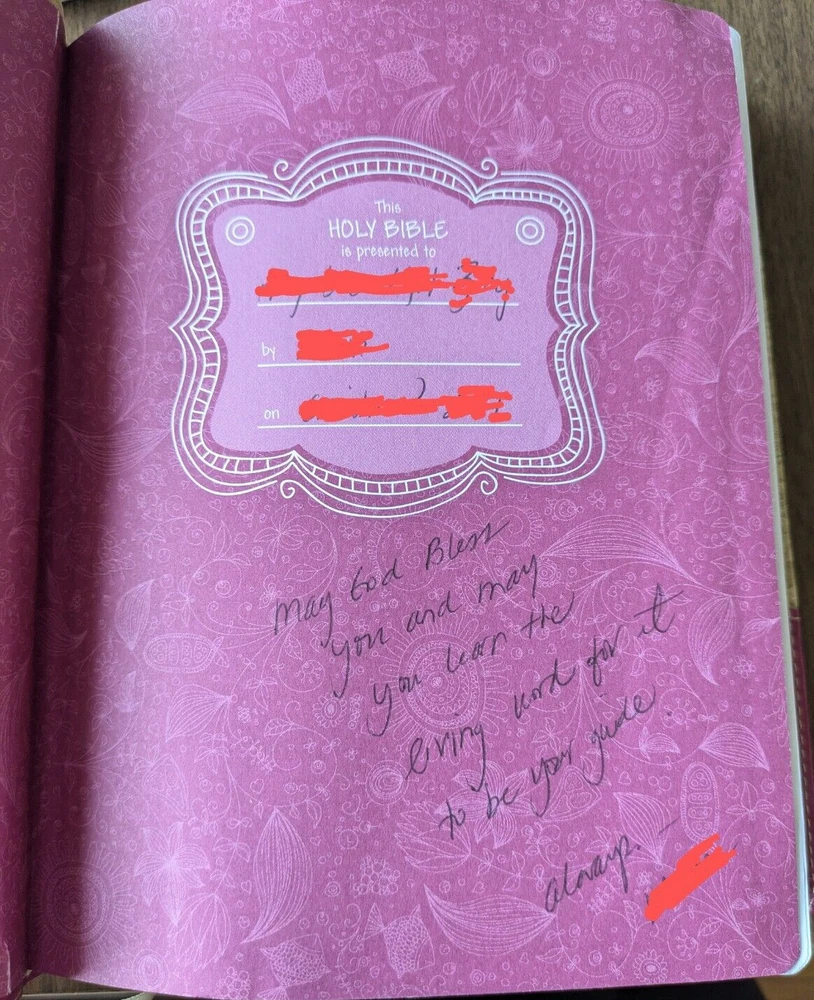 This
HOLY BIBLE
is presented to
by
on
May God Bless
you and may
you learn the
living word for it
to be your guide.
Always. -